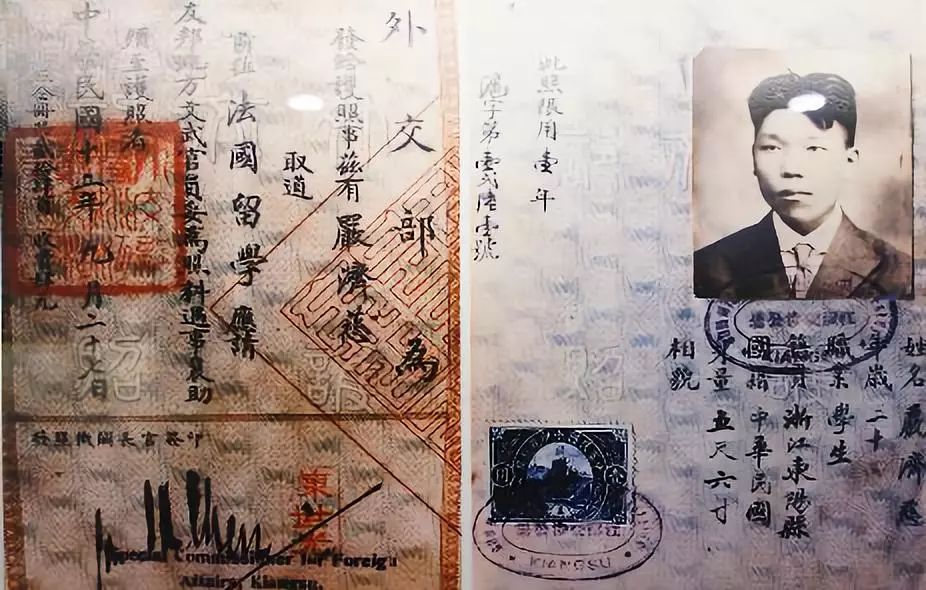 姓名 嚴濟慈
年歲 二十
職業 學生
籍貫 浙江東陽縣
國籍 中華民國
身量 五尺六寸
相貌
此照限用壹年
滬字第壹弍陸壹號
KIANGSU
外交部為
發給護照事茲有嚴濟慈
取道
前往法國留學應請
友邦地方文武官員妥為照料遇事襄助
須至護照者
中華民國十二年九月二十七日
Special Commissioner for Foreign
Affairs, Kiangsu.